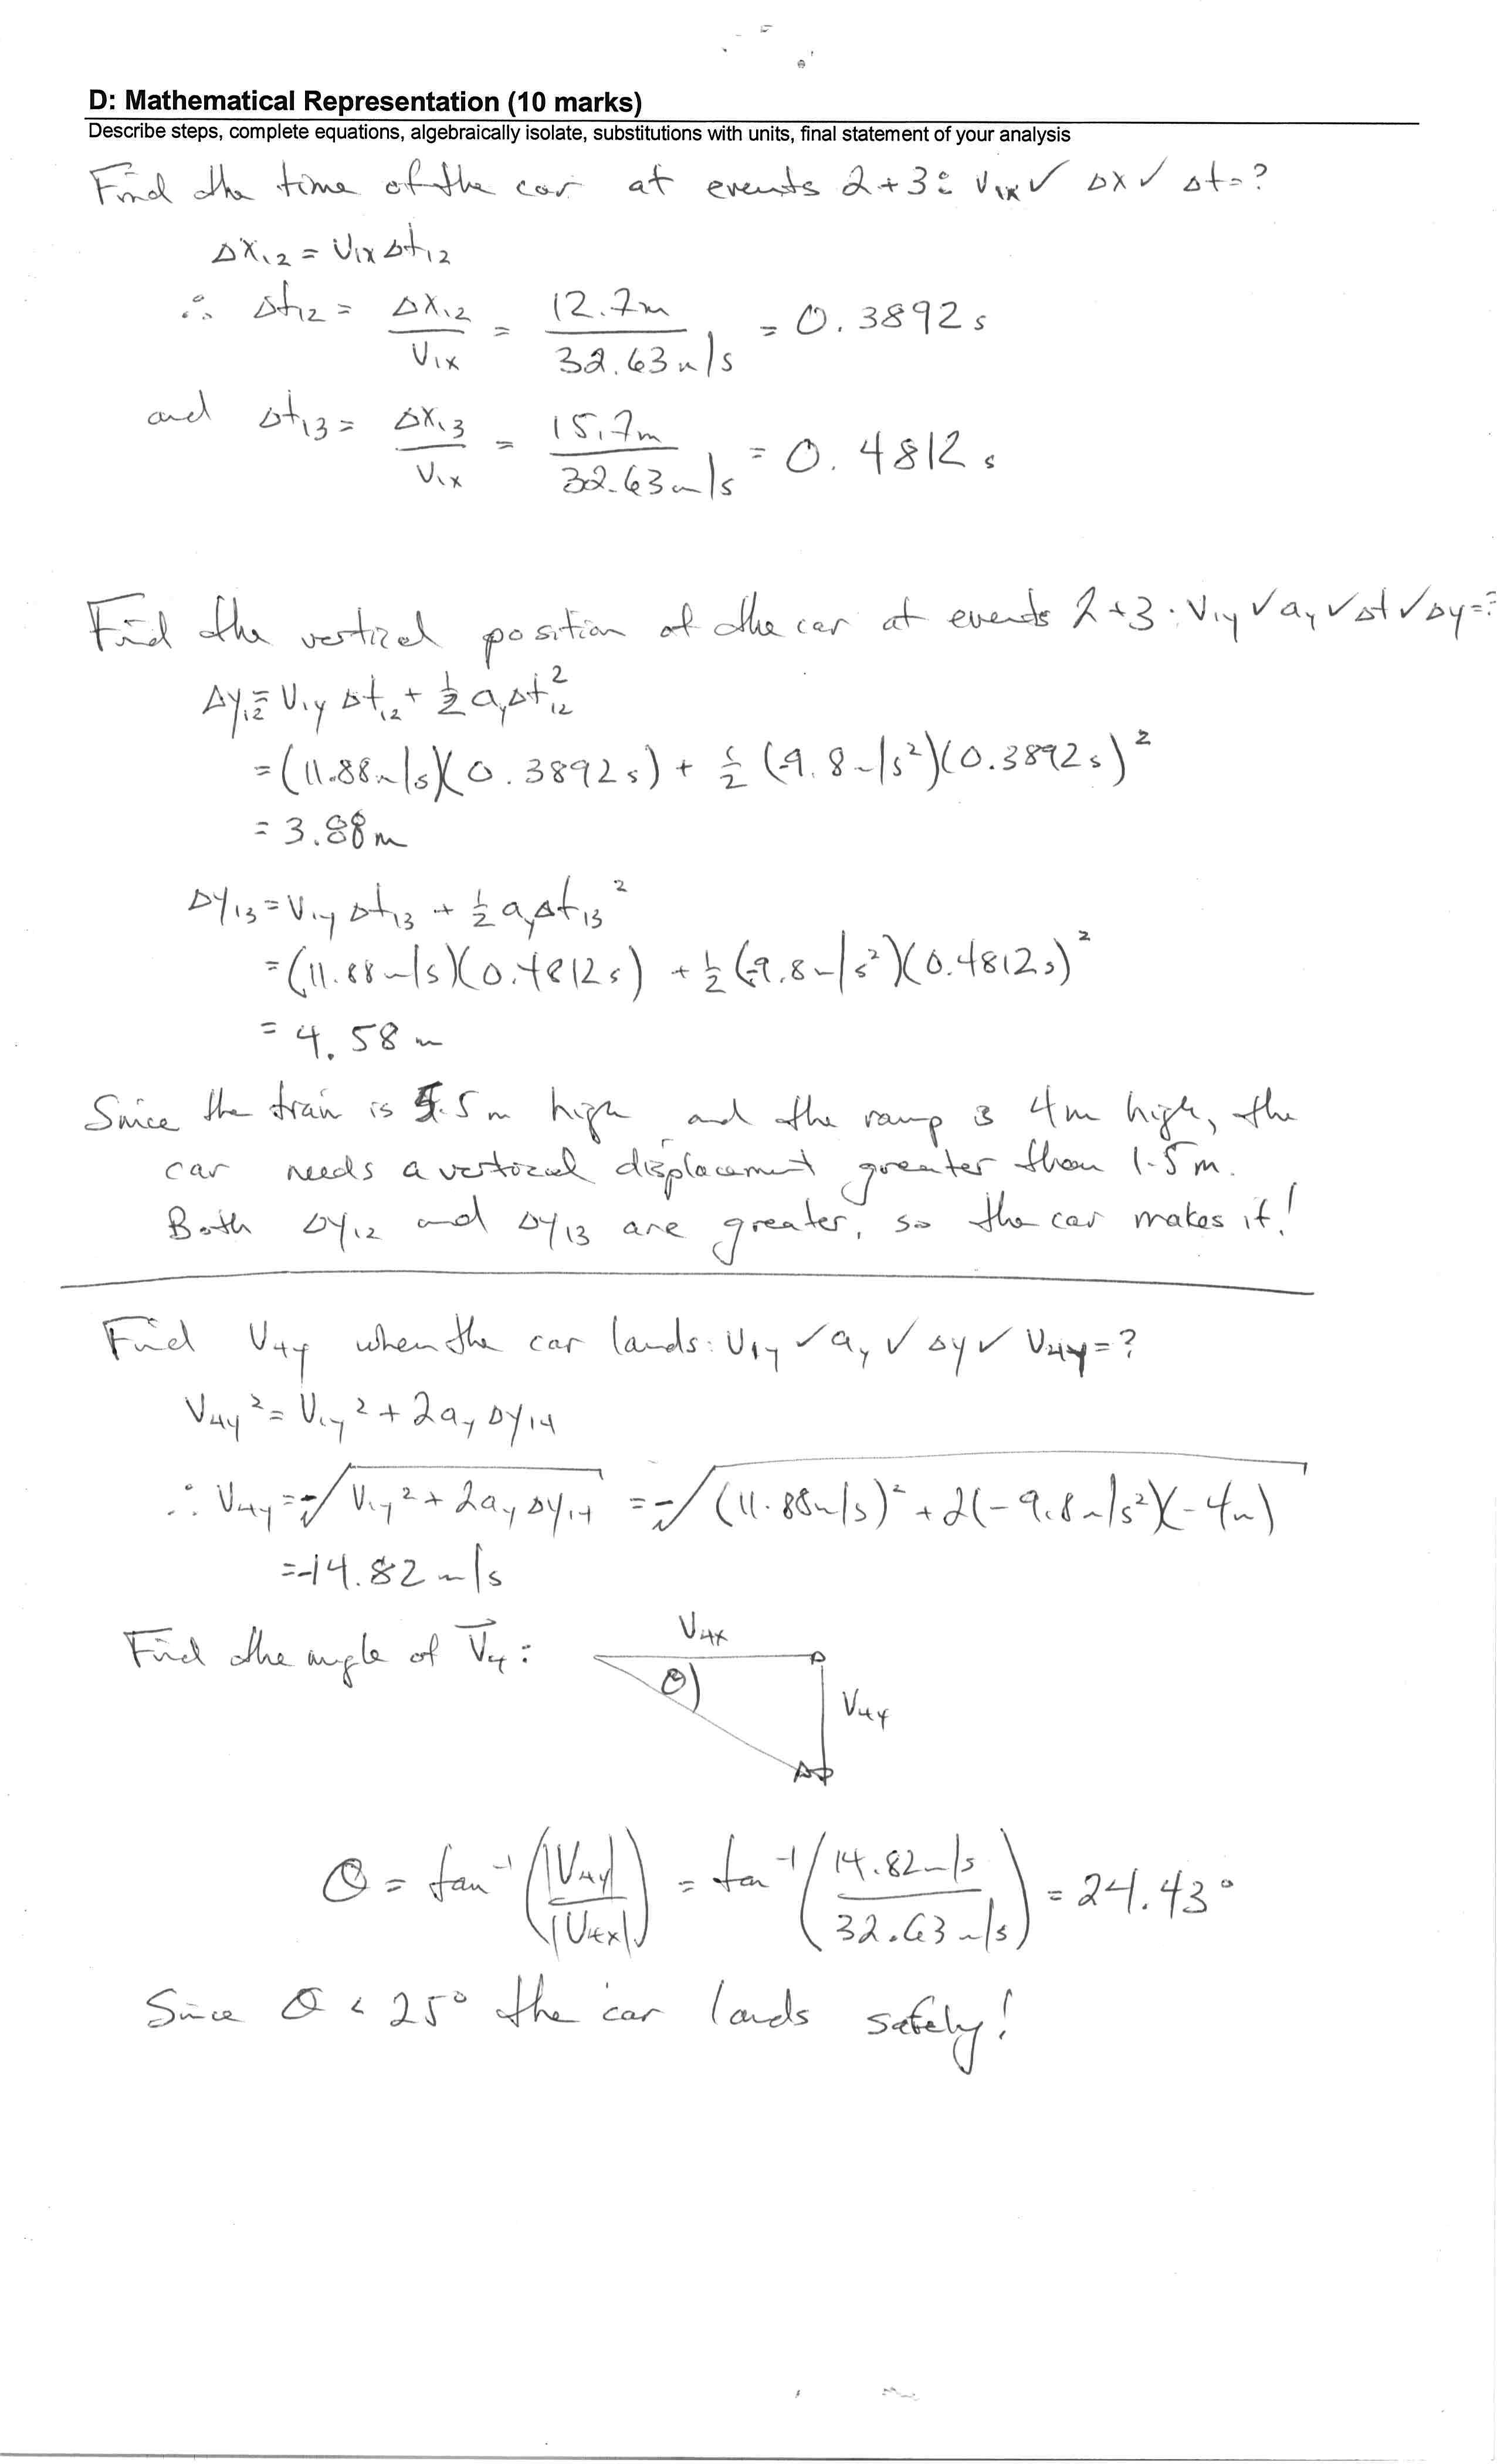 D: Mathematical Representation (10 marks)
Describe steps, complete equations, algebraically isolate, substitutions with units, final statement of your analysis
Find the time of the car at events 2+3: V₁ₓ✓ Δx✓ Δt=?
Δx₁₂ = V₁ₓ Δt₁₂
∴ Δt₁₂ = Δx₁₂ / V₁ₓ = 12.7m / 32.63 m/s = 0.3892 s
and Δt₁₃ = Δx₁₃ / V₁ₓ = 15.7m / 32.63 m/s = 0.4812 s
Find the vertical position of the car at events 2+3: V₁y ✓ ay ✓ Δt ✓ Δy=?
Δy₁₂ = V₁y Δt₁₂ + ½ ay Δt₁₂²
= (11.88 m/s)(0.3892 s) + ½ (-9.8 m/s²)(0.3892 s)²
= 3.88 m
Δy₁₃ = V₁y Δt₁₃ + ½ ay Δt₁₃²
= (11.88 m/s)(0.4812 s) + ½ (-9.8 m/s²)(0.4812 s)²
= 4.58 m
Since the train is 5.5 m high and the ramp is 4m high, the
car needs a vertical displacement greater than 1.5 m.
Both Δy₁₂ and Δy₁₃ are greater, so the car makes it!
Find V₄y when the car lands: V₁y ✓ ay ✓ Δy ✓ V₄y = ?
V₄y² = V₁y² + 2ay Δy₁₄
∴ V₄y = -√(V₁y² + 2ay Δy₁₄) = -√((11.88 m/s)² + 2(-9.8 m/s²)(-4m))
= -14.82 m/s
Find the angle of V⃗₄:
V₄ₓ
θ
V₄y
θ = tan⁻¹(|V₄y| / |V₄ₓ|) = tan⁻¹(14.82 m/s / 32.63 m/s) = 24.43°
Since θ < 25° the car lands safely!